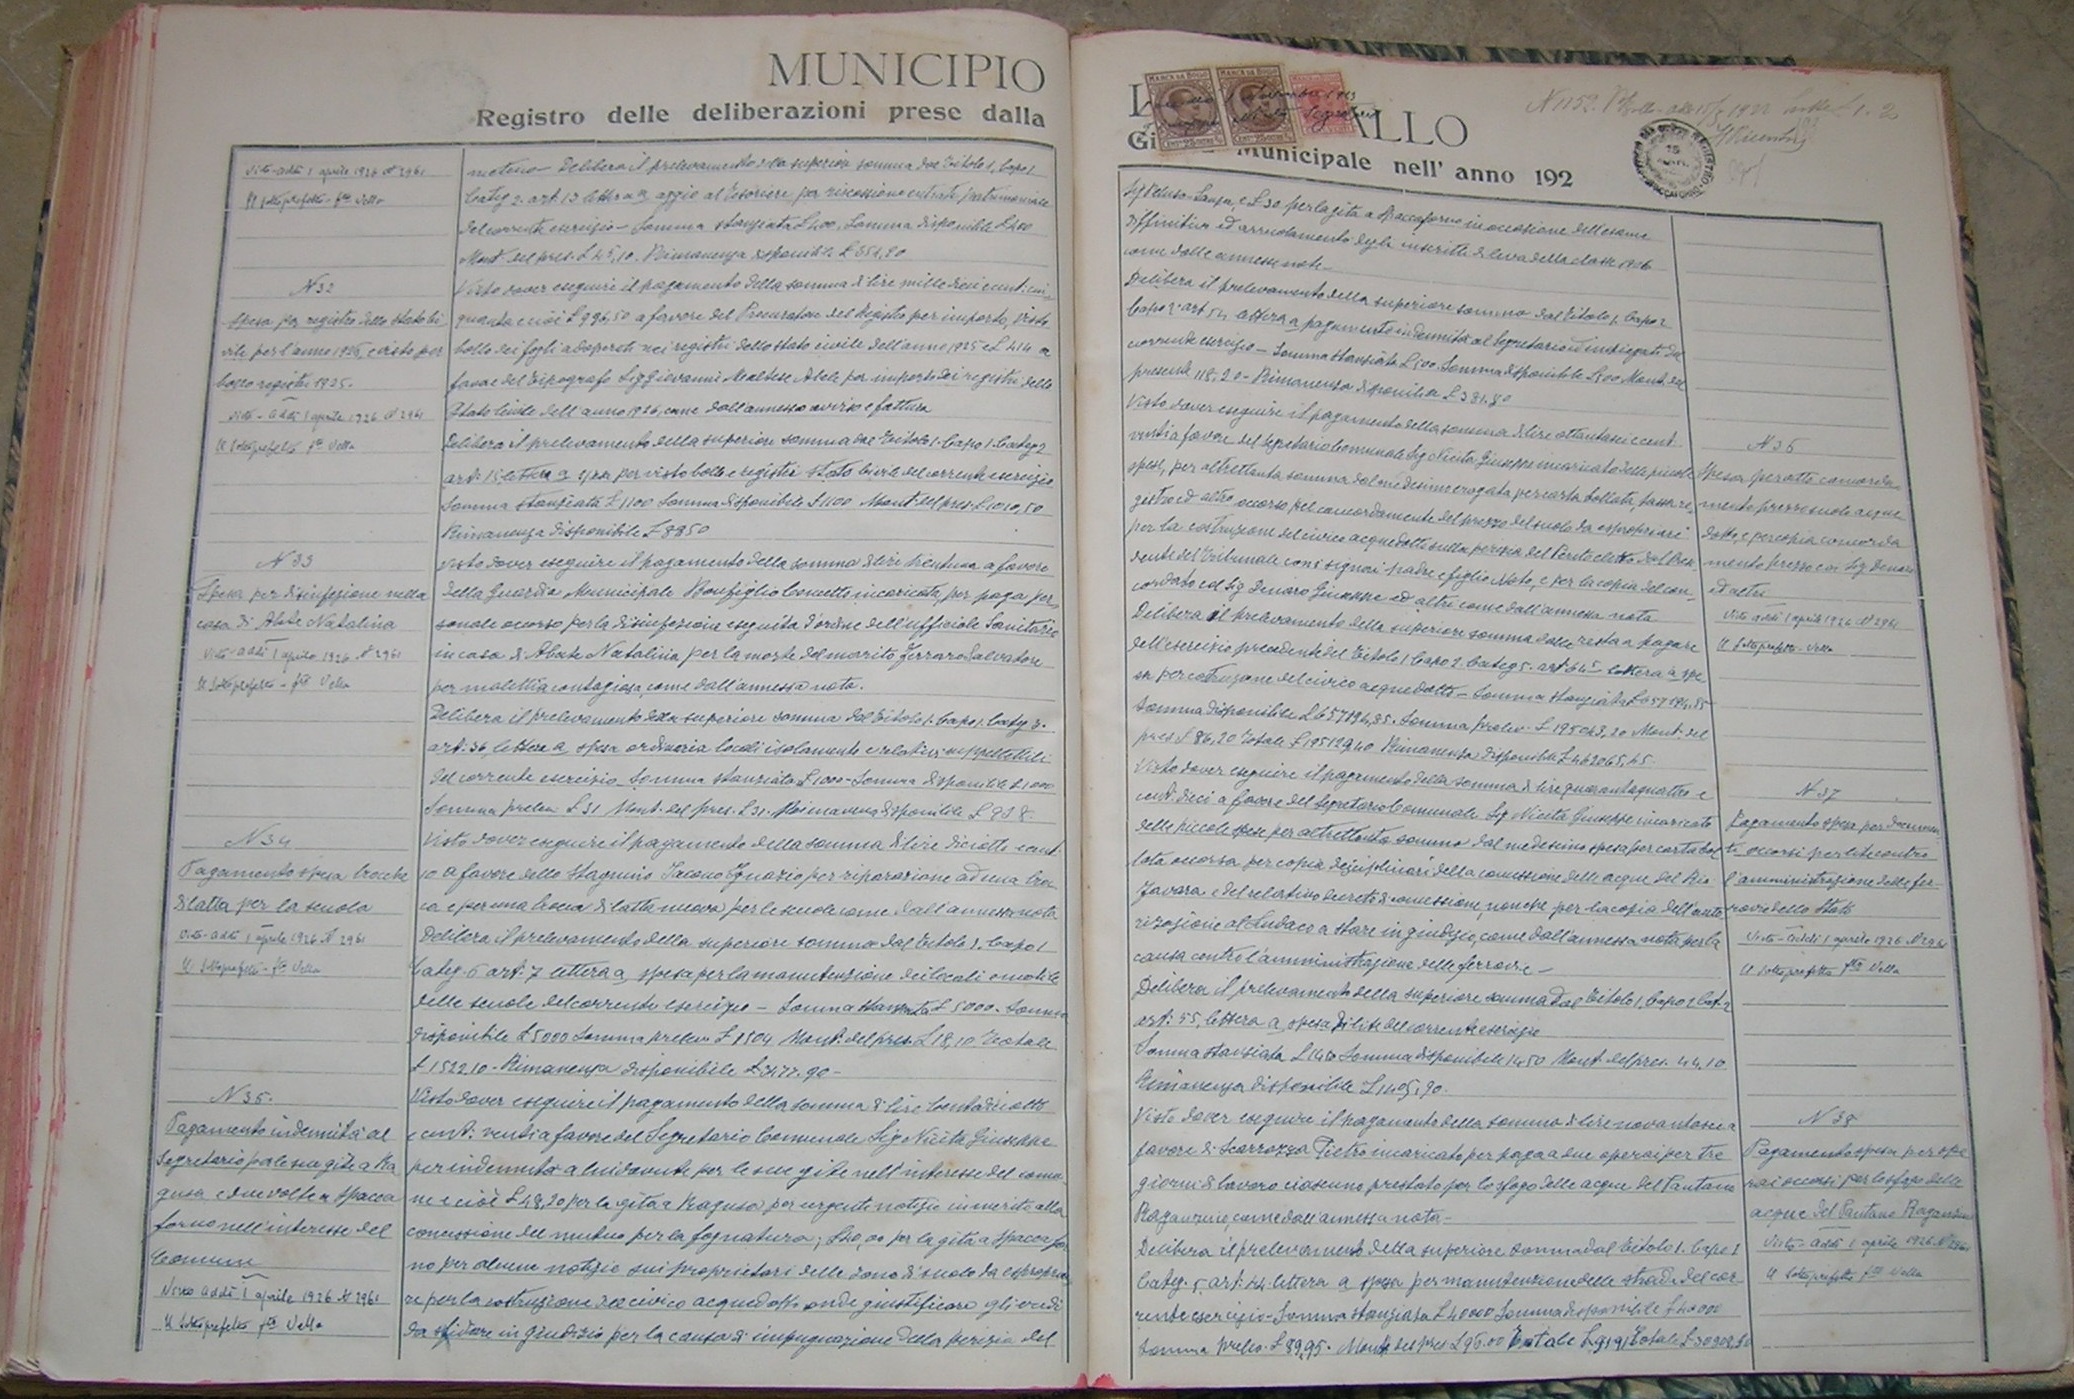 MUNICIPIO
Registro delle deliberazioni prese dalla
Visto addì 1 aprile 1926 N 2961
Il Sottoprefetto fto Vella
N 32
Spesa per registro dello stato ci
vile per l'anno 1926, e visto per
bollo registri 1925.
Visto - addì 1 aprile 1926 N 2961
Il Sottoprefetto fto Vella
N 33
Spesa per disinfezione nella
casa di Abate Natalina
Visto addì 1 aprile 1926 N 2961
Il Sottoprefetto - fto Vella
N 34
Pagamento spesa brocche
di latta per la scuola
Visto addì 1 aprile 1926 N 2961
Il Sottoprefetto - fto Vella
N 35.
Pagamento indennità al
Segretario per le sue gite a Ra
gusa e due volte a Spacca
forno nell'interesse del
Comune
Visto addì 1 aprile 1926 N 2961
Il Sottoprefetto fto Vella
Delibera il prelevamento della superiore somma dal Titolo 1. Capo 1
Categ. 2. art. 13 lettera a aggio al Tesoriere per riscossione entrate patrimoniali
del corrente esercizio - Somma stanziata £ 400. Somma disponibile £ 400
Mont. del pres. £ 45,10. Rimanenza disponibile £ 354,90
Visto dover eseguire il pagamento della somma di lire mille dieci e cent. cin
quanta e cioè £ 996,50 a favore del Procuratore del Registro per importo, visto
bollo dei fogli adoperati nei registri dello stato civile dell'anno 1925 e £ 414 a
favore del Tipografo Sig Giovanni Maltese Abela per importo dei registri dello
Stato Civile dell'anno 1926, come dall'annesso avviso e fattura
Delibera il prelevamento della superiore somma dal Titolo 1. Capo 1. Categ. 2
art. 15 lettera a spesa per visto bollo e registri stato civile del corrente esercizio
Somma stanziata £ 1100 Somma disponibile £ 1100 Mont. del pres. £ 1010,50
Rimanenza disponibile £ 89,50
Visto dover eseguire il pagamento della somma di lire trentuna a favore
della Guardia Municipale Bonfiglio Concetto incaricato, per paga per
sonale occorso per la disinfezione eseguita d'ordine dell'ufficiale Sanitario
in casa di Abate Natalina per la morte del marito Ferraro Salvatore
per malattia contagiosa, come dall'annessa nota.
Delibera il prelevamento della superiore somma dal Titolo 1. Capo 1. Categ. 3.
art. 36, lettera a spesa ordinaria locali isolamento e relativi suppellettili
del corrente esercizio - Somma stanziata £ 1000 - Somma disponibile £ 1000
Somma prelev. £ 31 Mont. del pres. £ 31. Rimanenza disponibile £ 938.
Visto dover eseguire il pagamento della somma di lire diciotto e cent.
10 a favore dello stagnino Iacono Ignazio per riparazione ad una broc
ca e per una brocca di latta nuova per le scuole come dall'annessa nota
Delibera il prelevamento della superiore somma dal Titolo 1. Capo 1
Categ. 6 art. 7 lettera a, spesa per la manutenzione dei locali e mobili
delle scuole del corrente esercizio - Somma stanziata £ 5000. Somma
disponibile £ 5000 Somma prelev. £ 1504 Mont. del pres. £ 18,10 Totale
£ 1522.10 - Rimanenza disponibile £ 3477.90 -
Visto dover eseguire il pagamento della somma di lire centodiciotto
e cent. venti a favore del Segretario Comunale Sig Nicita Giuseppe
per indennità a lui dovute per le sue gite nell'interesse del comu
ne e cioè £ 48,20 per la gita a Ragusa per urgenti notizie in merito alla
concessione del mutuo per la fognatura; £ 40,00 per la gita a Spaccafor
no per alcune notizie sui proprietari delle zone di suolo da espropria
re per la costruzione del civico acquedotto onde giustificare gli eredi
da sfidare in giudizio per la causa di impugnazione della perizia del
ALLO
Municipale nell' anno 192
MARCA DA BOLLO
N 1152
Sig Peluso - Lanza, e £ 30 per la gita a Spaccaforno in occasione dell'esame
diffinitivo ed arruolamento degli inscritti di leva della classe 1906
come dalle annesse note -
Delibera il prelevamento della superiore somma dal Titolo 1. Capo 2
Capo 2 art 54 lettera a pagamento indennità al Segretario ed impiegati del
corrente esercizio - Somma stanziata £ 500. Somma disponibile £ 500 Mont. del
presente 118,20 - Rimanenza disponibile £ 381.80
Visto dover eseguire il pagamento della somma di lire ottantasei e cent.
venti a favore del Segretario Comunale Sig Nicita Giuseppe incaricato delle piccole
spese, per altrettanta somma dal medesimo erogata per carta bollata, tassa re
gistro ed altro occorso pel concordamento del prezzo del suolo da espropriarsi
per la costruzione del civico acquedotto sulla perizia del Perito eletto dal Presi
dente del Tribunale con i signori padre e figlio Noto, e per la copia del con
cordato col Sig Denaro Giuseppe ed altri come dall'annessa nota
Delibera il prelevamento della superiore somma dalle resta a pagare
dell'esercizio precedente del Titolo 1. Capo 2. Categ 5. art. 64 lettera a spe
sa per costruzione del civico acquedotto - Somma stanziata £ 657194,85
Somma disponibile £ 657194,85. Somma prelev. £ 195043,20 Mont. del
pres £ 86,20 Totale £ 195129,40 Rimanenza disponibile £ 462065,45
Visto dover eseguire il pagamento della somma di lire quarantaquattro e
cent. dieci a favore del Segretario Comunale Sig Nicita Giuseppe incaricato
delle piccole spese per altrettanta somma dal medesimo spesa per carta bol
lata occorsa per copia dei disciplinari della concessione delle acque del Rio
Favara e del relativo decreto di concessione, nonché per la copia dell'auto
rizzazione al Sindaco a stare in giudizio, come dall'annessa nota per la
causa contro l'amministrazione delle ferrovie -
Delibera il prelevamento della superiore somma dal Titolo 1, Capo 2 Cat. 2
art. 55, lettera a spesa di lite del corrente esercizio
Somma stanziata £ 1450 Somma disponibile 1450 Mont. del pres. 44.10
Rimanenza disponibile £ 1405,90.
Visto dover eseguire il pagamento della somma di lire novantasei a
favore di Scarrozza Pietro incaricato per paga a due operai per tre
giorni di lavoro ciascuno prestato per lo sfogo delle acque del Pantano
Raganzino, come dall'annessa nota -
Delibera il prelevamento della superiore somma dal Titolo 1. Capo 1
Categ. 5, art. 44 lettera a spesa per manutenzione delle strade del cor
rente esercizio - Somma stanziata £ 40000 Somma disponibile £ 40000
Somma prelev. £ 89,95. Mont. del pres £ 96.00
N 36
Spesa per atto concorda
mento prezzo suolo acque
dotto, e per copia concorda
mento prezzo coi Sig Denaro
ed altri
Visto addì 1 aprile 1926 N 2961
Il Sottoprefetto - Vella
N 37
Pagamento spesa per documen
ti occorsi per lite contro
l'amministrazione delle fer-
rovie dello Stato
Visto - addì 1 aprile 1926 N 2961
Il Sottoprefetto fto Vella
N 38
Pagamento spesa per ope
rai occorsi per lo sfogo delle
acque del Pantano Raganzino
Visto - addì 1 aprile 1926 N 2961
Il Sottoprefetto fto Vella